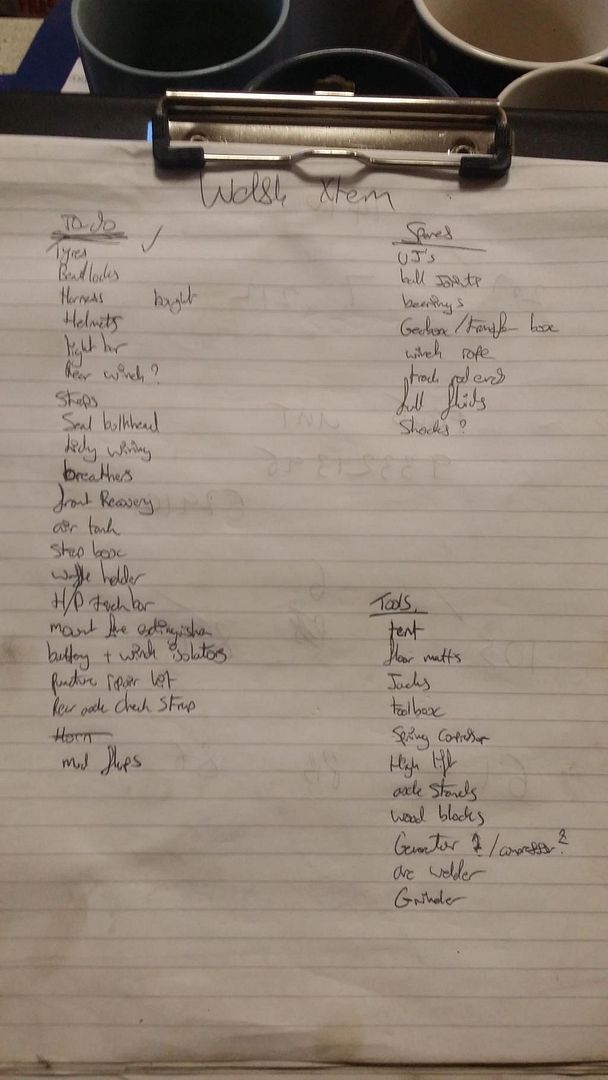 Welsh Xtrem
To-do
Tyres ✓
Beadlocks
Harness bought
Helmets
light bar
Rear winch?
Steps
Seal bulkhead
tidy wiring
breathers
front Recovery
air tank
Step box
waffle holder
H/D trackbar
mount fire extinguisher
battery + winch isolators
puncture repair kit
Rear axle check strap
Horn
mud flaps
Spares
UJ's
ball joints
bearings
Gearbox/transfer box
winch rope
track rod ends
full fluids
Shocks?
Tools.
tent
floor matts
Jacks
toolbox
Spring compressor
High lift
axle stands
wood blocks
Generator ? /compressor?
arc welder
Grinder